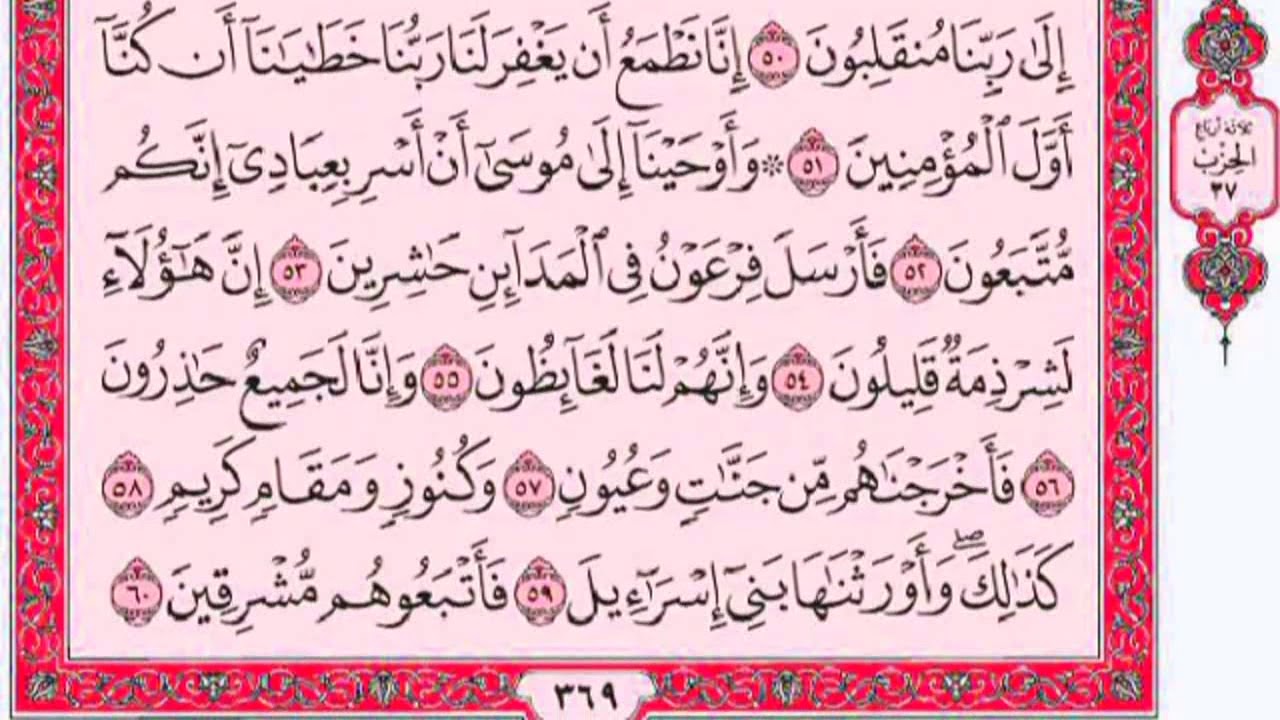 إِلَىٰ رَبِّنَا مُنقَلِبُونَ ٥٠ إِنَّا نَطْمَعُ أَن يَغْفِرَ لَنَا رَبُّنَا خَطَٰيَٰنَآ أَن كُنَّآ
أَوَّلَ ٱلْمُؤْمِنِينَ ٥١ ۞ وَأَوْحَيْنَآ إِلَىٰ مُوسَىٰٓ أَنْ أَسْرِ بِعِبَادِىٓ إِنَّكُم
مُّتَّبَعُونَ ٥٢ فَأَرْسَلَ فِرْعَوْنُ فِى ٱلْمَدَآئِنِ حَٰشِرِينَ ٥٣ إِنَّ هَٰٓؤُلَآءِ
لَشِرْذِمَةٌ قَلِيلُونَ ٥٤ وَإِنَّهُمْ لَنَا لَغَآئِظُونَ ٥٥ وَإِنَّا لَجَمِيعٌ حَٰذِرُونَ
٥٦ فَأَخْرَجْنَٰهُم مِّن جَنَّٰتٍ وَعُيُونٍ ٥٧ وَكُنُوزٍ وَمَقَامٍ كَرِيمٍ ٥٨
كَذَٰلِكَۖ وَأَوْرَثْنَٰهَا بَنِىٓ إِسْرَٰٓءِيلَ ٥٩ فَأَتْبَعُوهُم مُّشْرِقِينَ ٦٠
٣٦٩
ثلاثة أرباع
الحزب
٣٧